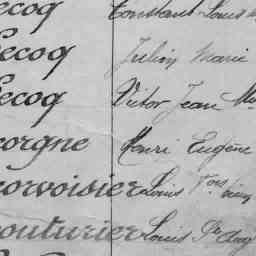 ecoq Constant Louis
ecoq Julien Marie
ecoq Victor Jean Ma
corgne Henri Eugène
corvoisier Louis Fois
couturier Louis Pre Aug